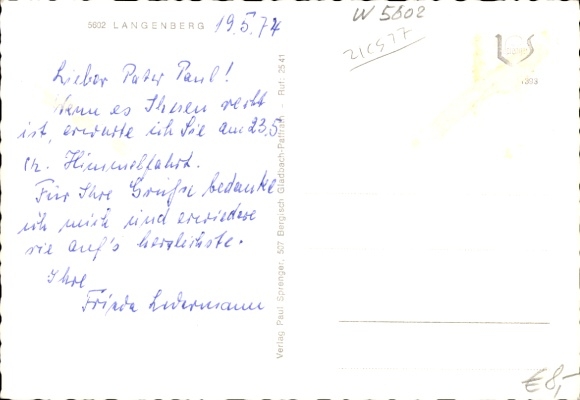 5602 LANGENBERG 19.5.74
W 5602
Lieber Pater Paul!
Wenn es Ihnen recht
ist, erwarte ich Sie am 23.5.
Himmelfahrt.
Für Ihre Grüße bedanke
ich mich und erwiedere
sie auf's herzlichste.
Ihre
Frieda Ledermann
Verlag Paul Sprenger, 507 Bergisch Gladbach-Paffrath - Ruf: 2541
€8,-